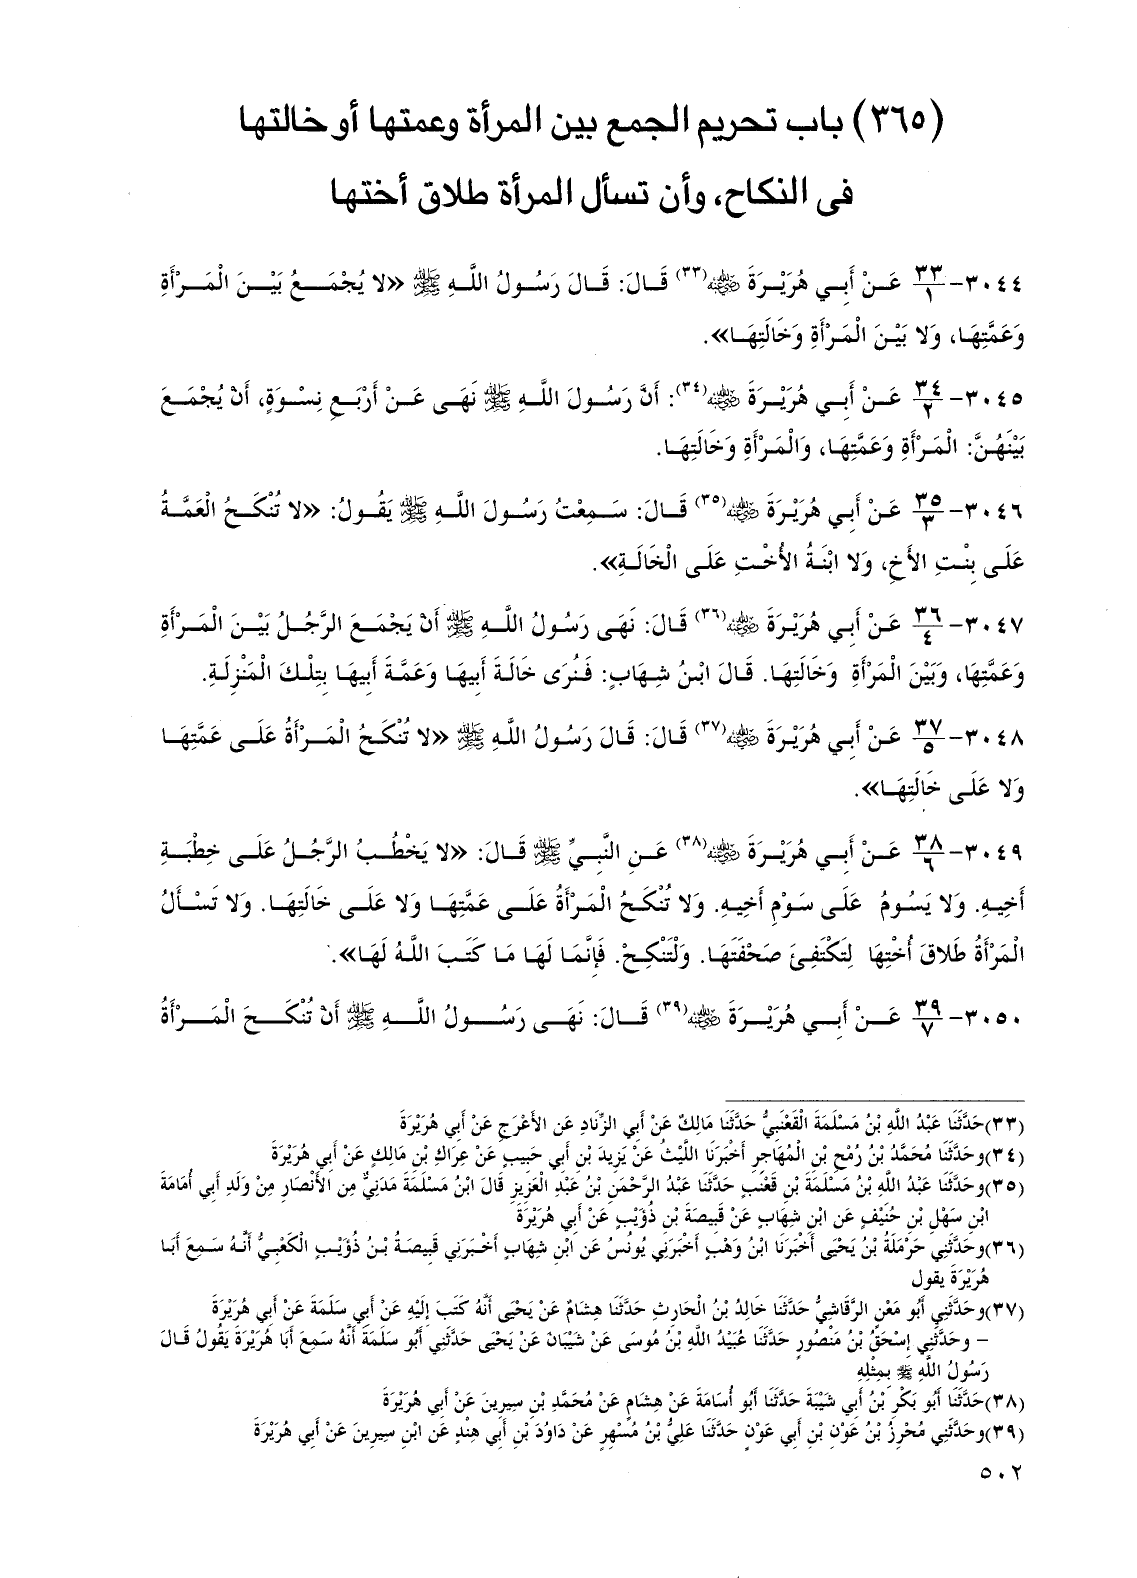 (٣٦٥) باب تحريم الجمع بين المرأة وعمتها أو خالتها
فى النكاح، وأن تسأل المرأة طلاق أختها
٣٠٤٤- ٣٣/١ عَنْ أَبِي هُرَيْرَةَ ﷺ(٣٣) قَالَ: قَالَ رَسُولُ اللَّهِ ﷺ «لا يُجْمَعُ بَيْنَ الْمَرْأَةِ
وَعَمَّتِهَا، وَلا بَيْنَ الْمَرْأَةِ وَخَالَتِهَا».
٣٠٤٥- ٣٤/٢ عَنْ أَبِي هُرَيْرَةَ ﷺ(٣٤): أَنَّ رَسُولَ اللَّهِ ﷺ نَهَى عَنْ أَرْبَعِ نِسْوَةٍ، أَنْ يُجْمَعَ
بَيْنَهُنَّ: الْمَرْأَةِ وَعَمَّتِهَا، وَالْمَرْأَةِ وَخَالَتِهَا.
٣٠٤٦- ٣٥/٣ عَنْ أَبِي هُرَيْرَةَ ﷺ(٣٥) قَالَ: سَمِعْتُ رَسُولَ اللَّهِ ﷺ يَقُولُ: «لا تُنْكَحُ الْعَمَّةُ
عَلَى بِنْتِ الأَخِ، وَلا ابْنَةُ الأُخْتِ عَلَى الْخَالَةِ».
٣٠٤٧- ٣٦/٤ عَنْ أَبِي هُرَيْرَةَ ﷺ(٣٦) قَالَ: نَهَى رَسُولُ اللَّهِ ﷺ أَنْ يَجْمَعَ الرَّجُلُ بَيْنَ الْمَرْأَةِ
وَعَمَّتِهَا، وَبَيْنَ الْمَرْأَةِ وَخَالَتِهَا. قَالَ ابْنُ شِهَابٍ: فَنُرَى خَالَةَ أَبِيهَا وَعَمَّةَ أَبِيهَا بِتِلْكَ الْمَنْزِلَةِ.
٣٠٤٨- ٣٧/٥ عَنْ أَبِي هُرَيْرَةَ ﷺ(٣٧) قَالَ: قَالَ رَسُولُ اللَّهِ ﷺ «لا تُنْكَحُ الْمَرْأَةُ عَلَى عَمَّتِهَا
وَلا عَلَى خَالَتِهَا».
٣٠٤٩- ٣٨/٦ عَنْ أَبِي هُرَيْرَةَ ﷺ(٣٨) عَنِ النَّبِيِّ ﷺ قَالَ: «لا يَخْطُبُ الرَّجُلُ عَلَى خِطْبَةِ
أَخِيهِ. وَلا يَسُومُ عَلَى سَوْمِ أَخِيهِ. وَلا تُنْكَحُ الْمَرْأَةُ عَلَى عَمَّتِهَا وَلا عَلَى خَالَتِهَا. وَلا تَسْأَلُ
الْمَرْأَةُ طَلاقَ أُخْتِهَا لِتَكْتَفِئَ صَحْفَتَهَا. وَلْتَنْكِحْ. فَإِنَّمَا لَهَا مَا كَتَبَ اللَّهُ لَهَا».
٣٠٥٠- ٣٩/٧ عَنْ أَبِي هُرَيْرَةَ ﷺ(٣٩) قَالَ: نَهَى رَسُولُ اللَّهِ ﷺ أَنْ تُنْكَحَ الْمَرْأَةُ
(٣٣)حَدَّثَنَا عَبْدُ اللَّهِ بْنُ مَسْلَمَةَ الْقَعْنَبِيُّ حَدَّثَنَا مَالِكٌ عَنْ أَبِي الزِّنَادِ عَنِ الأَعْرَجِ عَنْ أَبِي هُرَيْرَةَ
(٣٤)وحَدَّثَنَا مُحَمَّدُ بْنُ رُمْحِ بْنِ الْمُهَاجِرِ أَخْبَرَنَا اللَّيْثُ عَنْ يَزِيدَ بْنِ أَبِي حَبِيبٍ عَنْ عِرَاكِ بْنِ مَالِكٍ عَنْ أَبِي هُرَيْرَةَ
(٣٥)وحَدَّثَنَا عَبْدُ اللَّهِ بْنُ مَسْلَمَةَ بْنِ قَعْنَبٍ حَدَّثَنَا عَبْدُ الرَّحْمَنِ بْنُ عَبْدِ الْعَزِيزِ قَالَ ابْنُ مَسْلَمَةَ مَدَنِيٌّ مِنِ الأَنْصَارِ مِنْ وَلَدِ أَبِي أُمَامَةَ
ابْنِ سَهْلِ بْنِ حُنَيْفٍ عَنِ ابْنِ شِهَابٍ عَنْ قَبِيصَةَ بْنِ ذُؤَيْبٍ عَنْ أَبِي هُرَيْرَةَ
(٣٦)وحَدَّثَنِي حَرْمَلَةُ بْنُ يَحْيَى أَخْبَرَنَا ابْنُ وَهْبٍ أَخْبَرَنِي يُونُسُ عَنِ ابْنِ شِهَابٍ أَخْبَرَنِي قَبِيصَةُ بْنُ ذُؤَيْبٍ الْكَعْبِيُّ أَنَّهُ سَمِعَ أَبَا
هُرَيْرَةَ يقول
(٣٧)وحَدَّثَنِي أَبُو مَعْنٍ الرَّقَاشِيُّ حَدَّثَنَا خَالِدُ بْنُ الْحَارِثِ حَدَّثَنَا هِشَامٌ عَنْ يَحْيَى أَنَّهُ كَتَبَ إِلَيْهِ عَنْ أَبِي سَلَمَةَ عَنْ أَبِي هُرَيْرَةَ
– وحَدَّثَنِي إِسْحَقُ بْنُ مَنْصُورٍ حَدَّثَنَا عُبَيْدُ اللَّهِ بْنُ مُوسَى عَنْ شَيْبَانَ عَنْ يَحْيَى حَدَّثَنِي أَبُو سَلَمَةَ أَنَّهُ سَمِعَ أَبَا هُرَيْرَةَ يَقُولُ قَالَ
رَسُولُ اللَّهِ ﷺ بِمِثْلِهِ
(٣٨)حَدَّثَنَا أَبُو بَكْرِ بْنُ أَبِي شَيْبَةَ حَدَّثَنَا أَبُو أُسَامَةَ عَنْ هِشَامٍ عَنْ مُحَمَّدِ بْنِ سِيرِينَ عَنْ أَبِي هُرَيْرَةَ
(٣٩)وحَدَّثَنِي مُحْرِزُ بْنُ عَوْنِ بْنِ أَبِي عَوْنٍ حَدَّثَنَا عَلِيُّ بْنُ مُسْهِرٍ عَنْ دَاوُدَ بْنِ أَبِي هِنْدٍ عَنِ ابْنِ سِيرِينَ عَنْ أَبِي هُرَيْرَةَ
٥٠٢